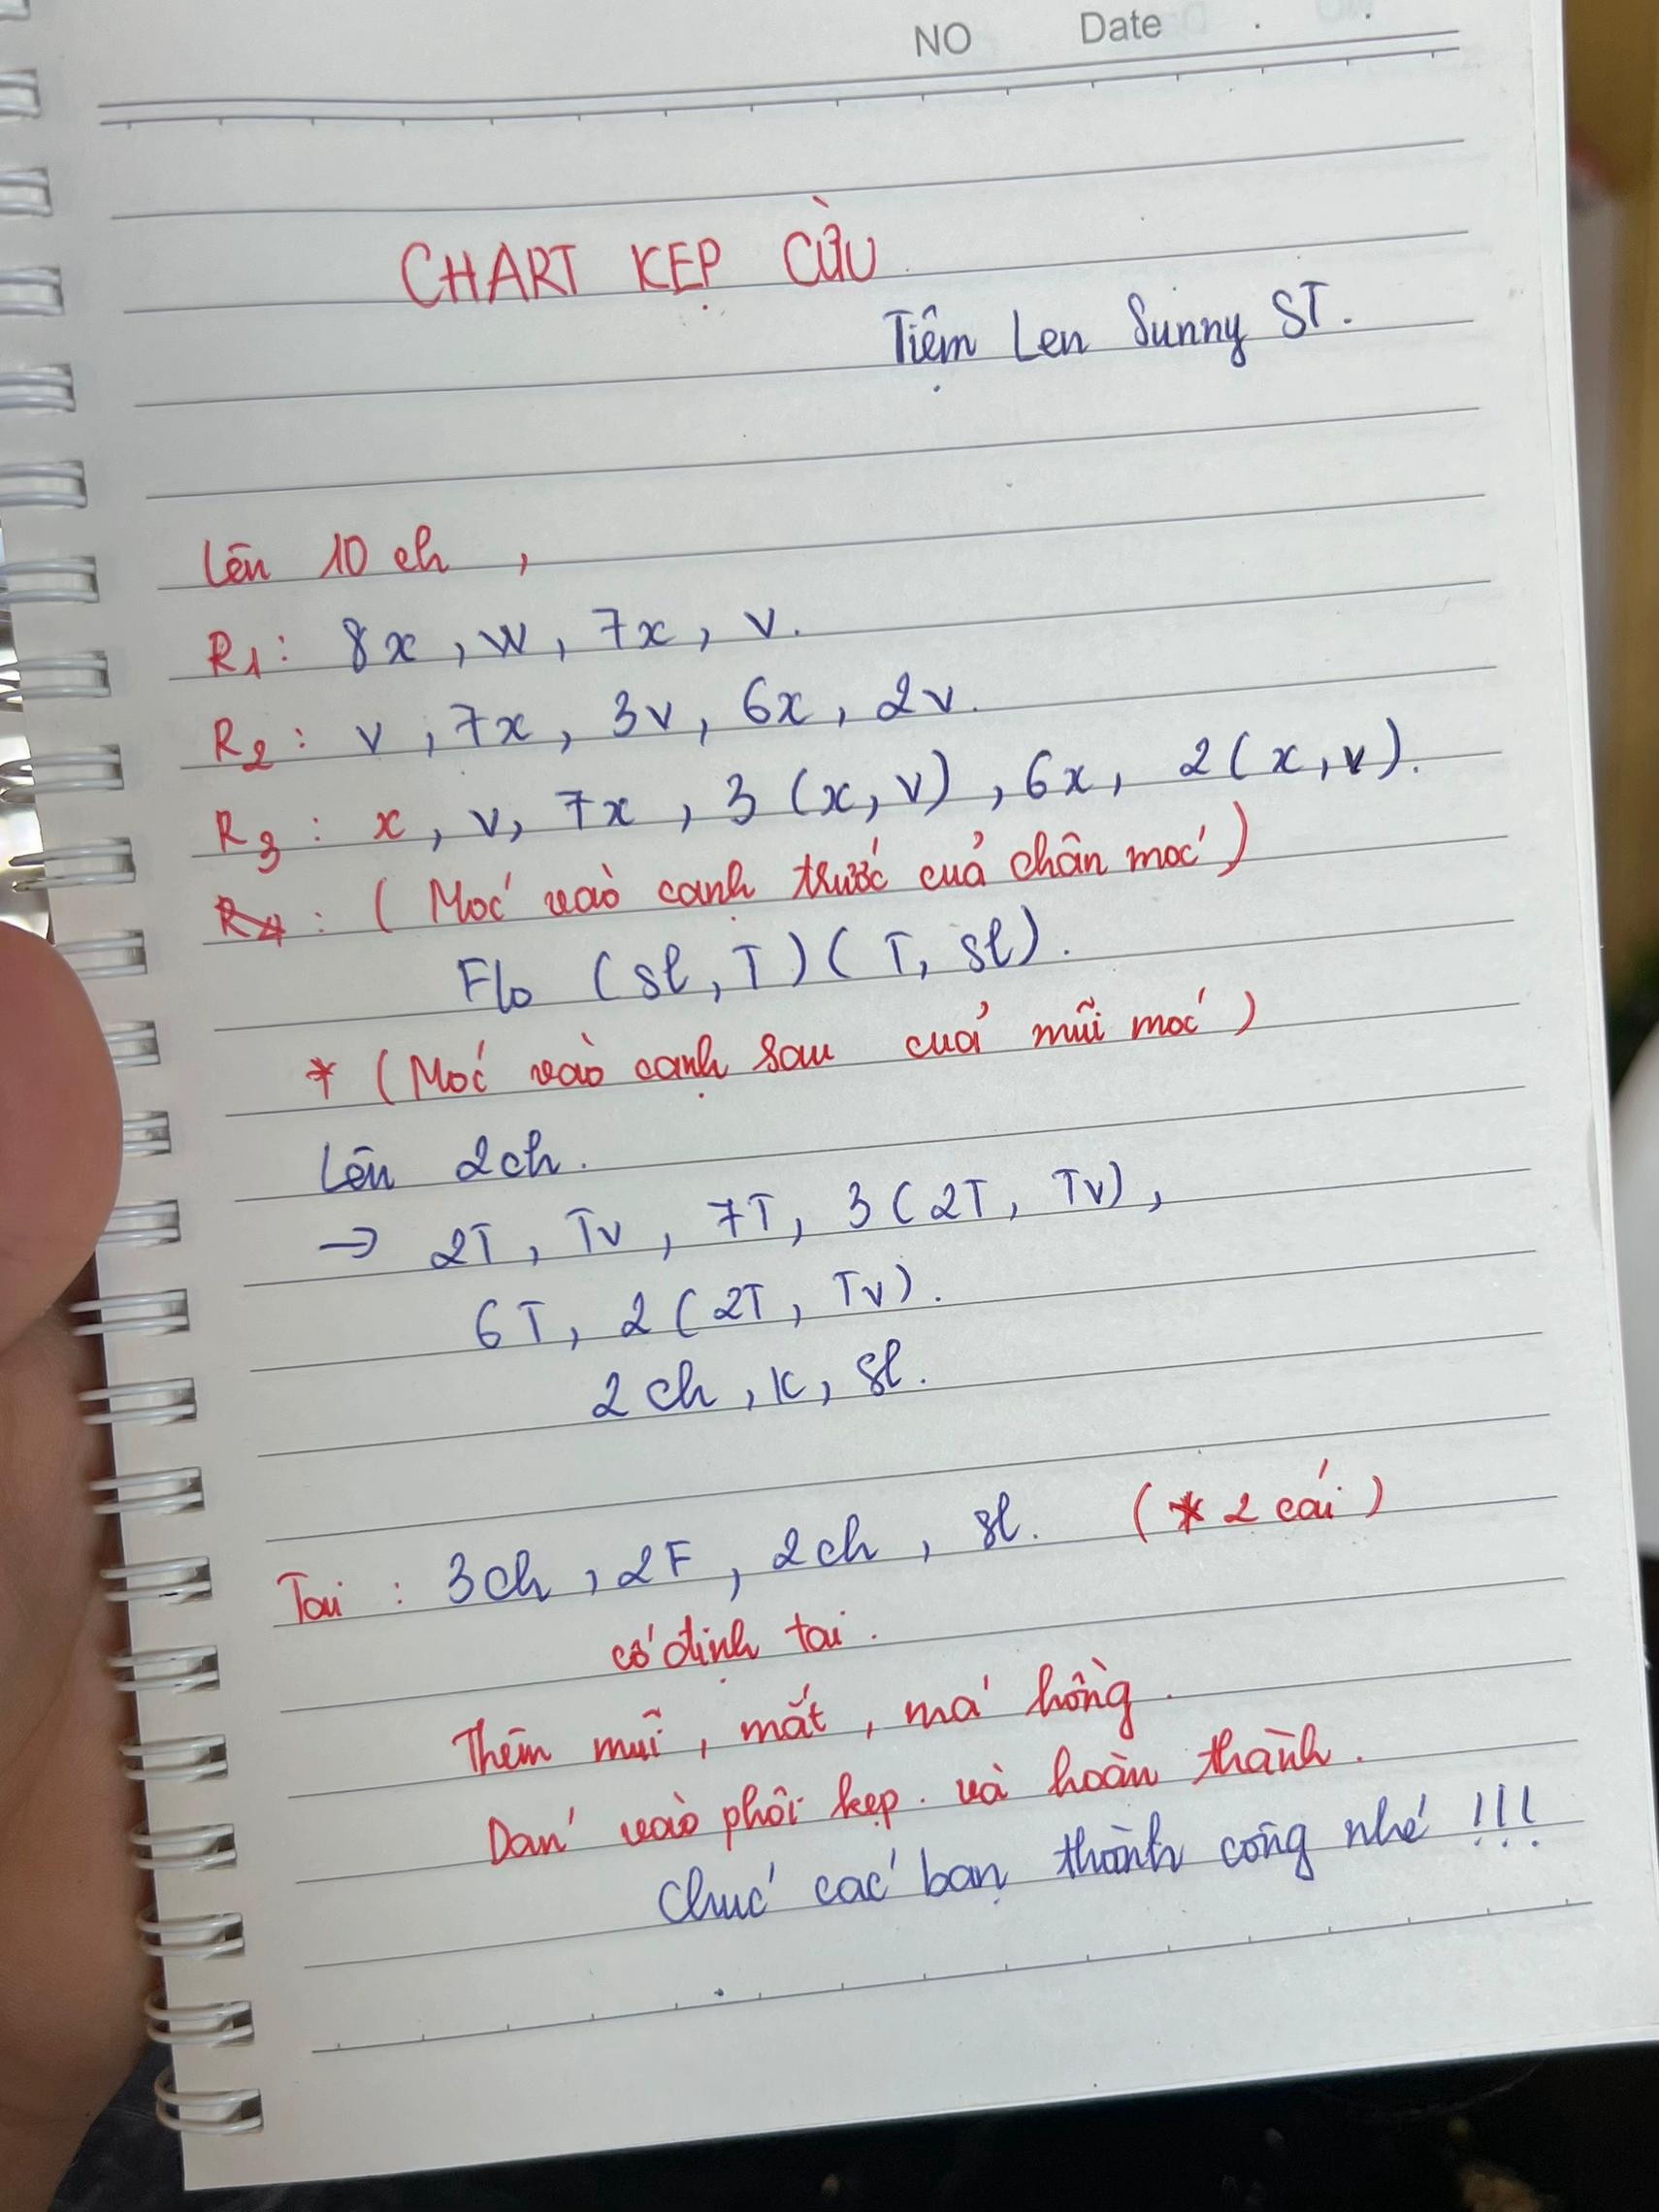 NO Date
CHART KẸP CỪU
Tiệm Len Sunny ST.
Lên 10 ch ,
R1: 8x , W , 7x , V.
R2: V , 7x , 3V , 6x , 2V.
R3: x , V , 7x , 3 (x, V) , 6x , 2 (x, V).
R4: (Móc vào cạnh trước của chân móc)
Flo (sl, T) (T, sl).
* (Móc vào cạnh sau của mũi móc)
Lên 2ch.
→ 2T , TV , 7T , 3 (2T, TV) ,
6T , 2 (2T, TV).
2ch , K , sl.
Tai : 3ch , 2F , 2ch , sl. (* 2 cái)
cố định tai.
Thêm mũi , mắt , má hồng.
Dán vào phôi kẹp. và hoàn thành.
Chúc các bạn thành công nhé !!!